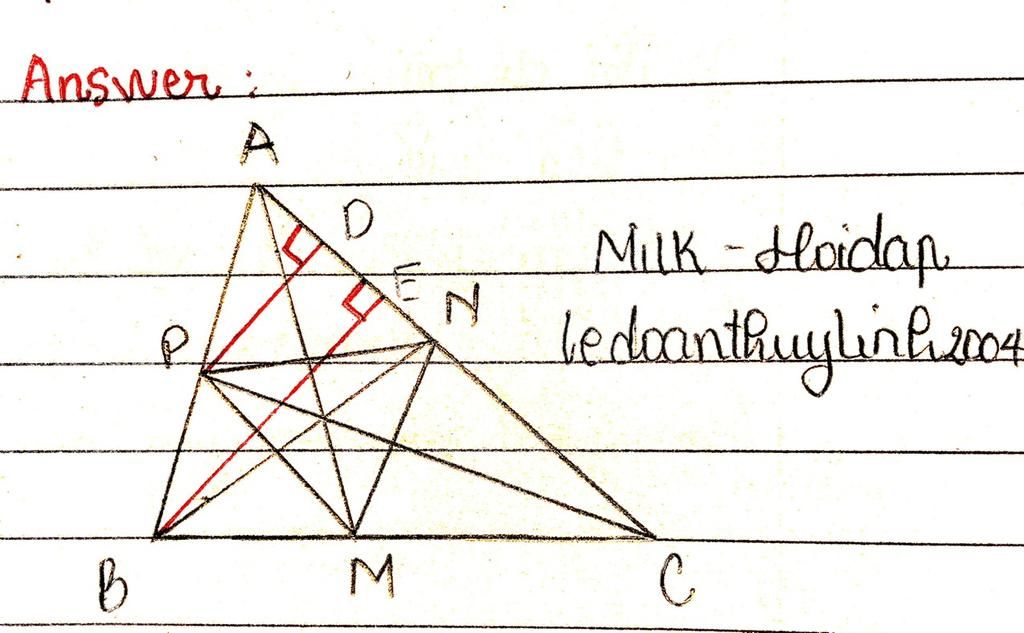 Answer :
A
D
Milk - Hoidap
E
N
ledoanthuylinh2004
P
B
M
C